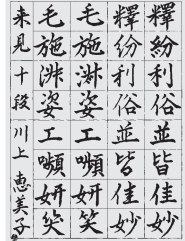 釋紛利俗並皆佳妙
釋紛利俗並皆佳妙
毛施淑姿工嚬妍笑
毛施淑姿工嚬妍笑
来見 十段 川上 恵美子